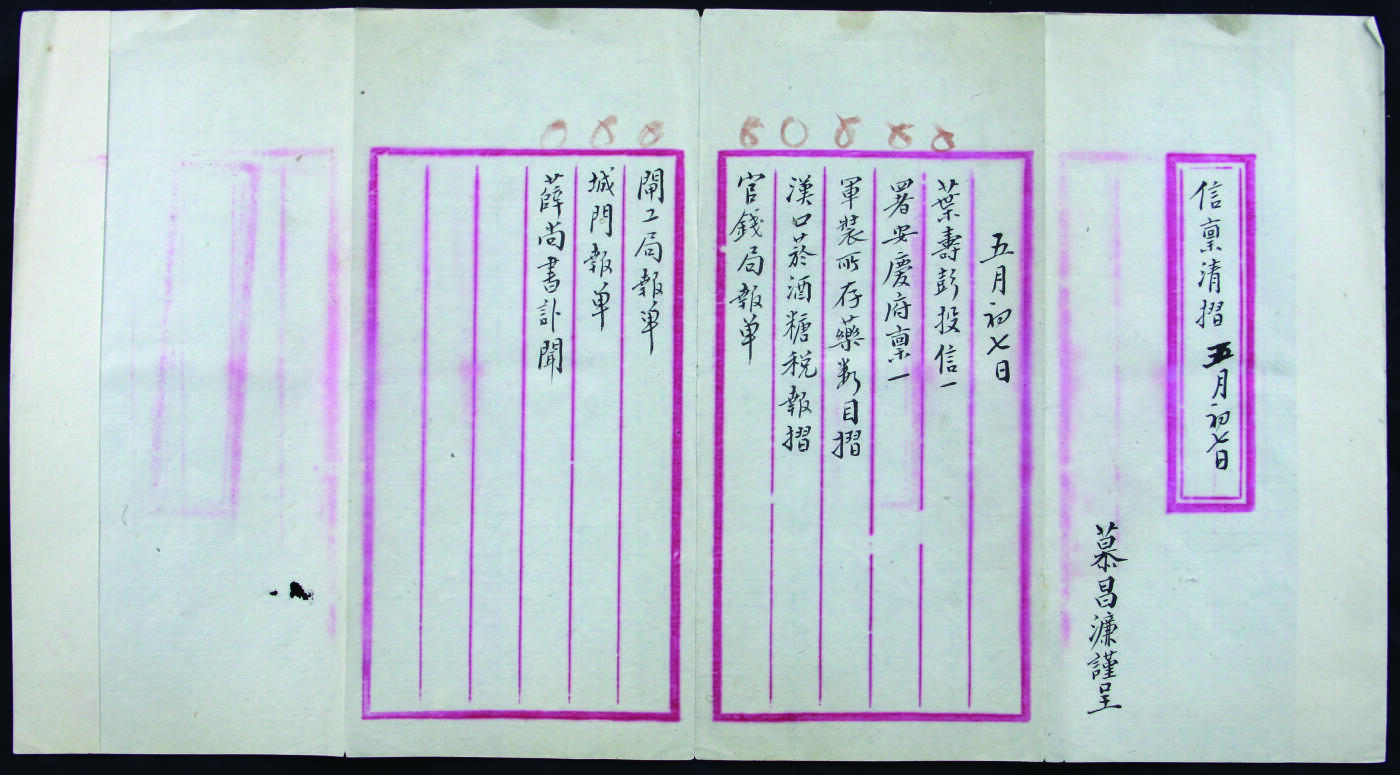 信稟清摺 五月初七日
慕昌濂謹呈
五月初七日
葉壽彭投信一
署安慶府稟一
軍裝所存藥數目摺
漢口菸酒糖稅報摺
官錢局報单
閘工局報单
城門報单
薛尚書訃聞